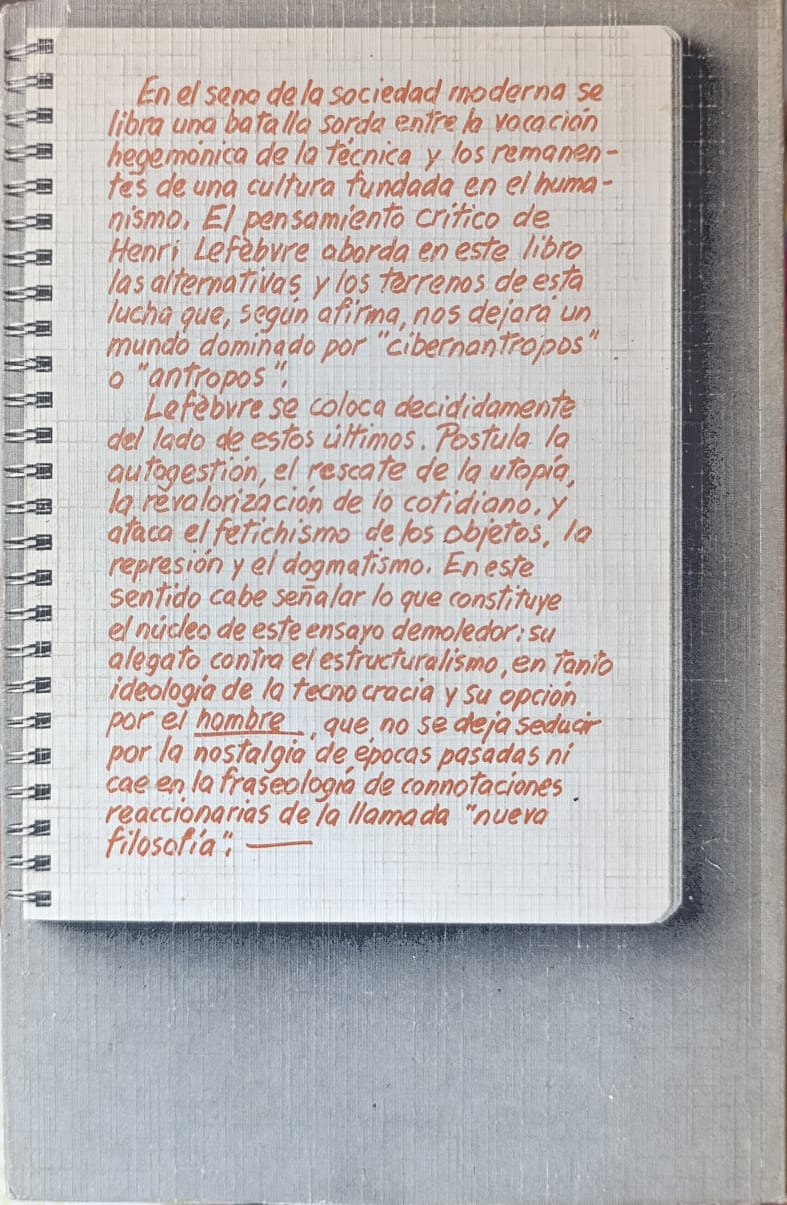 En el seno de la sociedad moderna se
libra una batalla sorda entre la vocación
hegemónica de la técnica y los remanen-
tes de una cultura fundada en el huma-
nismo. El pensamiento crítico de
Henri Lefèbvre aborda en este libro
las alternativas y los terrenos de esta
lucha que, según afirma, nos dejará un
mundo dominado por "cibernantropos"
o "antropos".
Lefèbvre se coloca decididamente
del lado de estos últimos. Postula la
autogestión, el rescate de la utopía,
la revalorización de lo cotidiano, y
ataca el fetichismo de los objetos, la
represión y el dogmatismo. En este
sentido cabe señalar lo que constituye
el núcleo de este ensayo demoledor: su
alegato contra el estructuralismo, en tanto
ideología de la tecnocracia y su opción
por el hombre, que no se deja seducir
por la nostalgia de épocas pasadas ni
cae en la fraseología de connotaciones
reaccionarias de la llamada "nueva
filosofía".